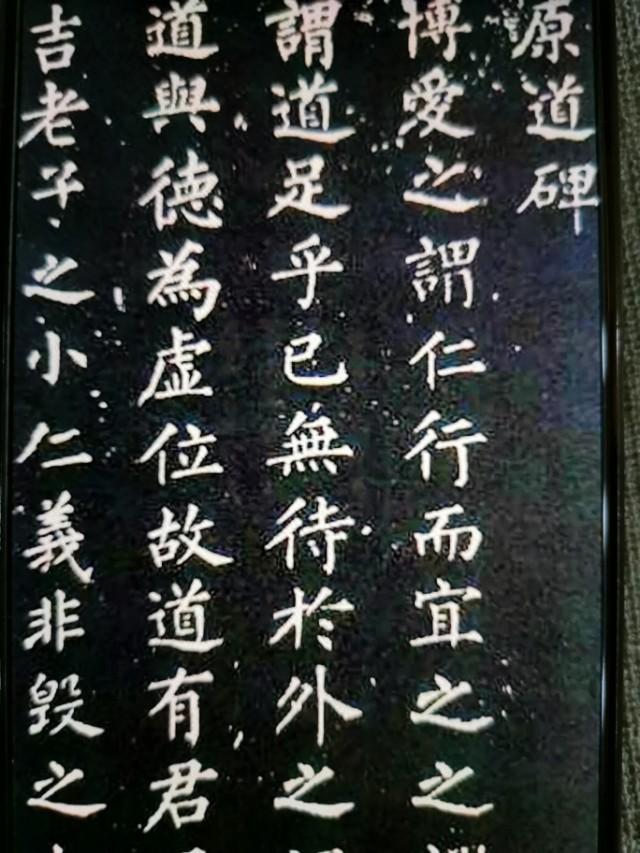 原道碑
博愛之謂仁行而宜之之
謂道足乎已無待於外之
道與德為虛位故道有君
吉老子之小仁義非毀之